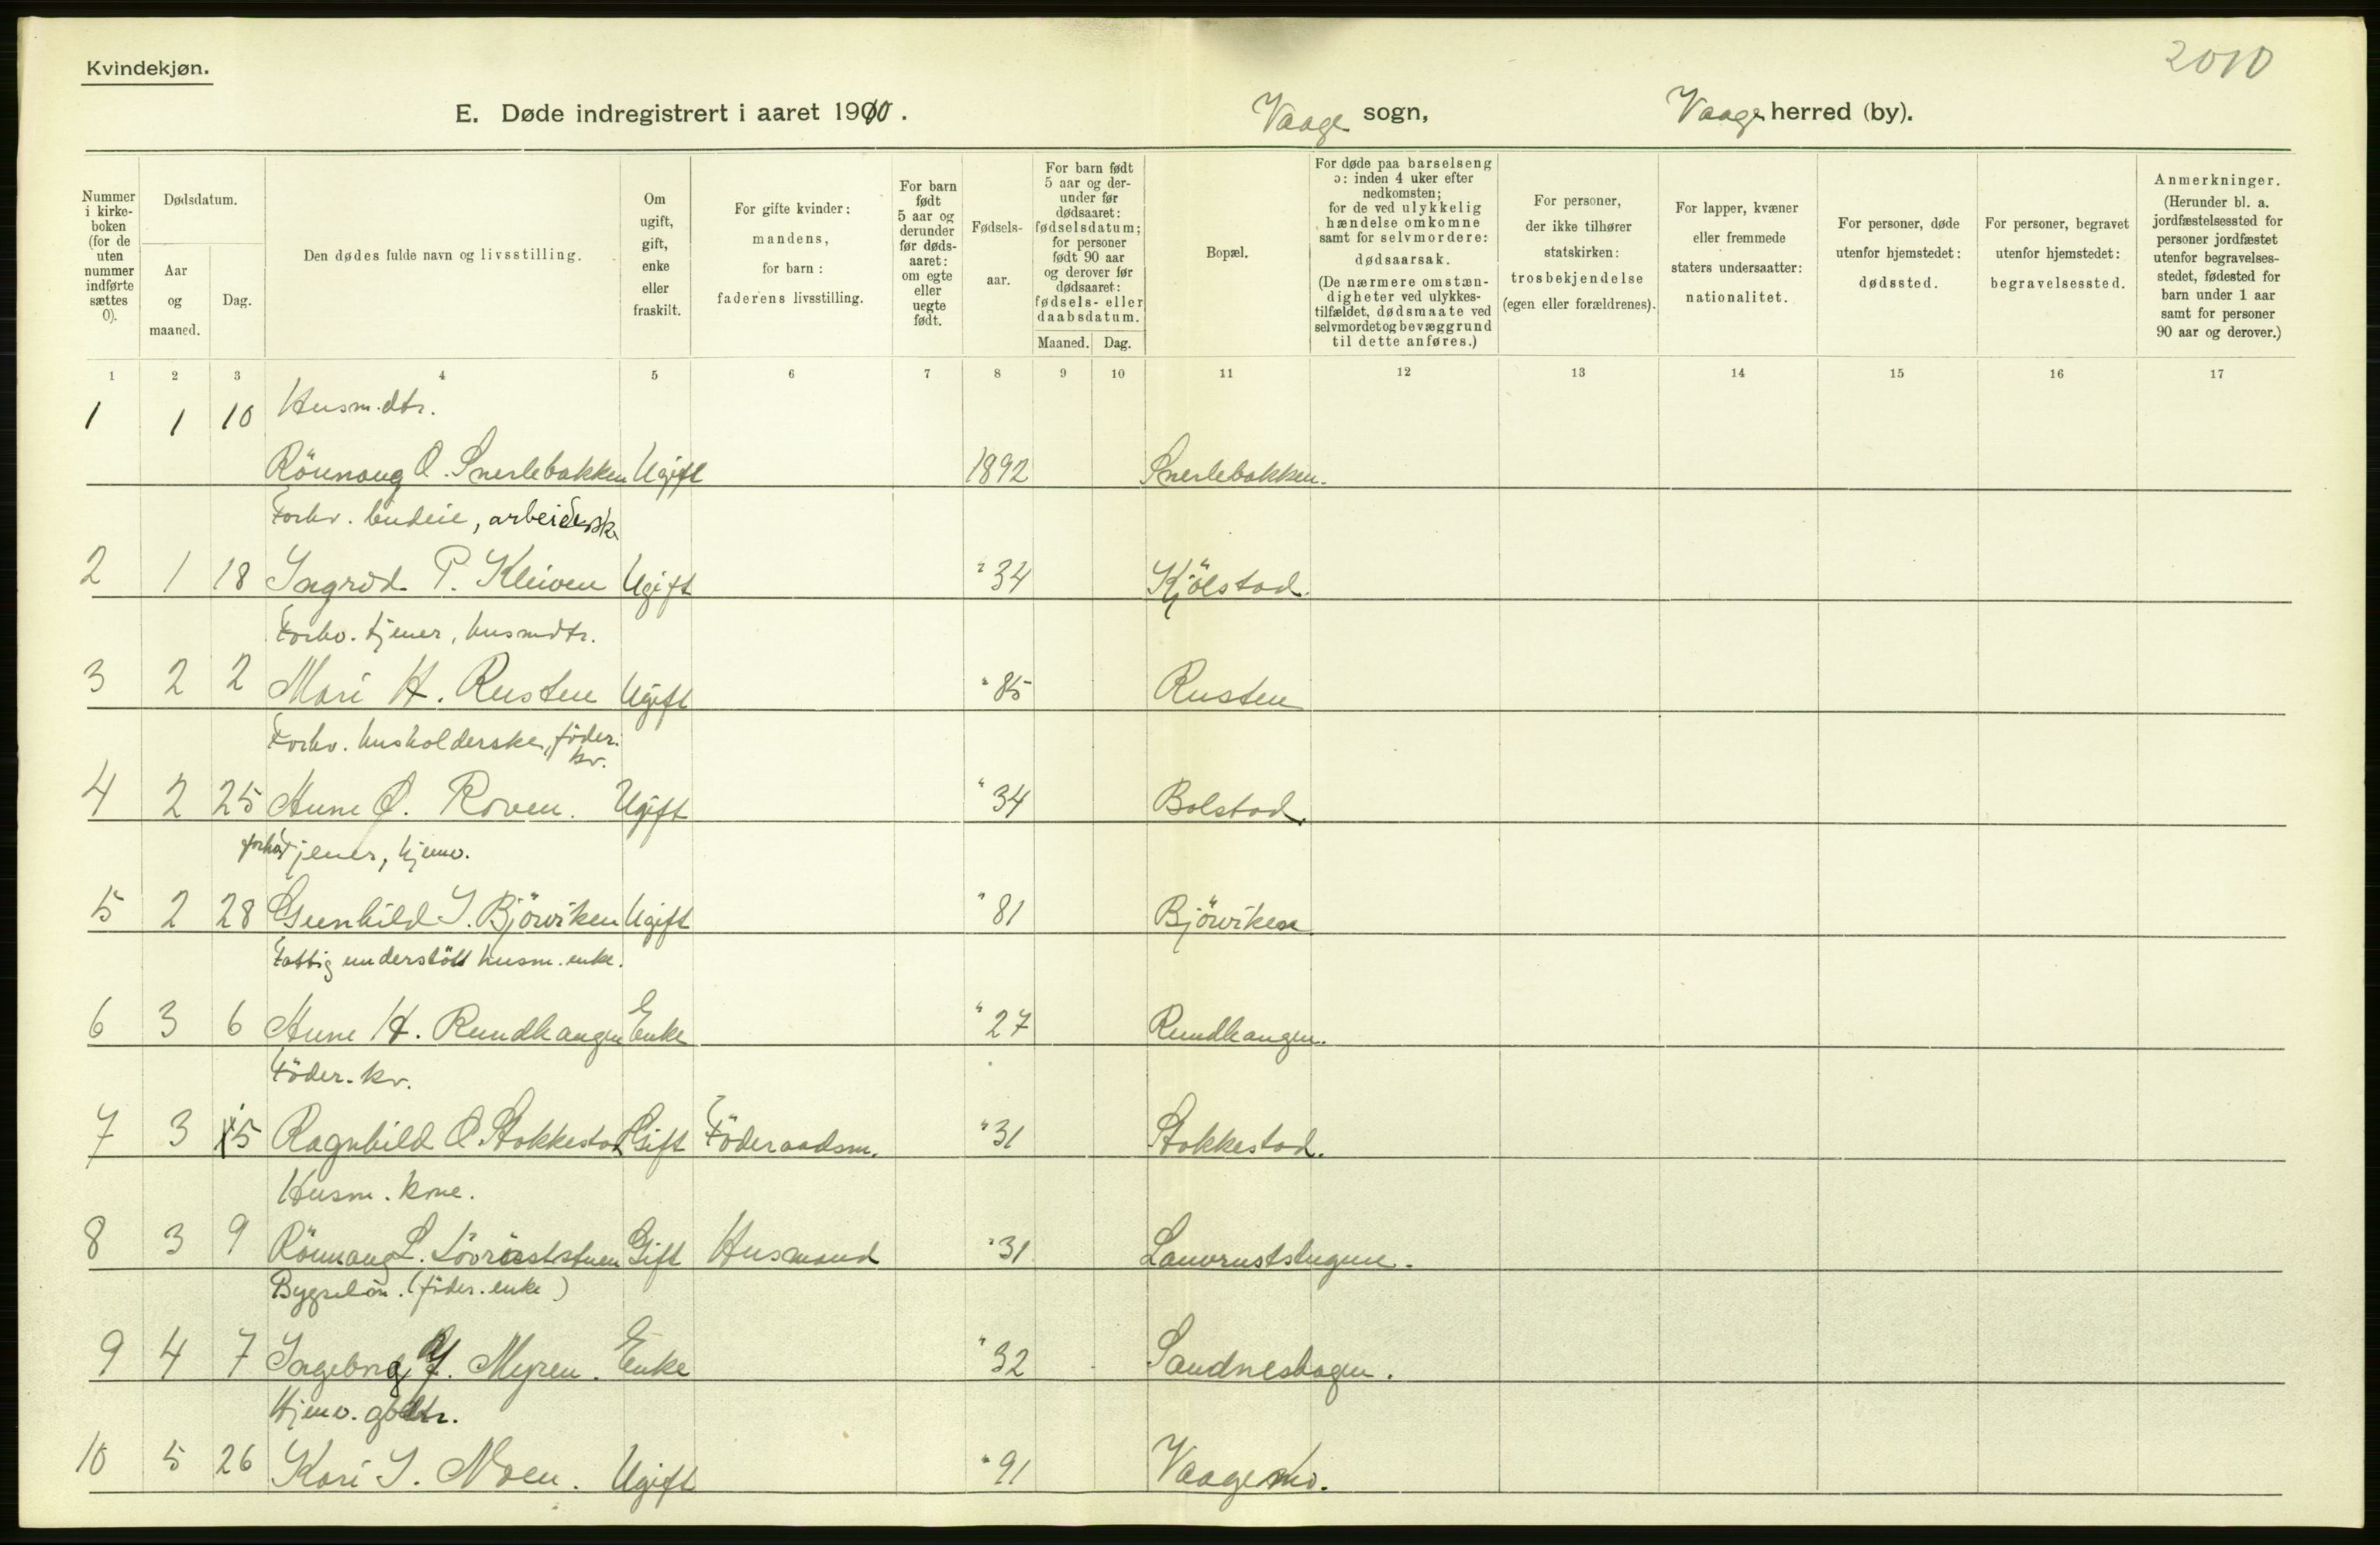 Kvindekjøn.
2010
E. Døde indregistrert i aaret 1910.
Vaage sogn,
Vaage herred (by).
Nummer i kirke-boken (for de uten nummer indførte sættes 0).
Dødsdatum.
Aar og maaned.
Dag.
Den dødes fulde navn og livsstilling.
Om ugift, gift, enke eller fraskilt.
For gifte kvinder: mandens, for barn: faderens livsstilling.
For barn født 5 aar og derunder før døds-aaret: om egte eller uegte født.
Fødsels-aar.
For barn født 5 aar og der-under før dødsaaret: fødselsdatum; for personer født 90 aar og derover før dødsaaret: fødsels- eller daabsdatum.
Maaned. Dag.
Bopæl.
For døde paa barselseng ɔ: inden 4 uker efter nedkomsten; for de ved ulykkelig hændelse omkomne samt for selvmordere: dødsaarsak. (De nærmere omstæn-digheter ved ulykkes-tilfældet, dødsmaate ved selvmordet og bevæggrund til dette anføres.)
For personer, der ikke tilhører statskirken: trosbekjendelse (egen eller forældrenes).
For lapper, kvæner eller fremmede staters undersaatter: nationalitet.
For personer, døde utenfor hjemstedet: dødssted.
For personer, begravet utenfor hjemstedet: begravelsessted.
Anmerkninger. (Herunder bl. a. jordfæstelsessted for personer jordfæstet utenfor begravelses-stedet, fødested for barn under 1 aar samt for personer 90 aar og derover.)
1 2 3 4 5 6 7 8 9 10 11 12 13 14 15 16 17
Husm.dtr.
1 1 10 Rönnaug O. Snerlebakken Ugift 1892 Snerlebakken.
Forhv. budeie, arbeiderske
2 1 18 Ingrid P. Kleiven Ugift " 34 Kjölstad.
Forhv. tjener, husmdtr.
3 2 2 Mari H. Rusten Ugift " 85 Rusten
Forhv. husholderske, föder. kv.
4 2 25 Anne O. Roven. Ugift " 34 Bolstad.
forhv tjener, hjemv.
5 2 28 Gunhild I. Björviken Ugift " 81 Björviken
Fattig understött husm. enke.
6 3 6 Anne H. Rundhaugen Enke " 27 Rundhaugen.
Föder. kv.
7 3 15 Ragnhild O. Stokkestad Gift Föderaadsm. " 31 Stokkestad.
Husm. kone.
8 3 9 Rönnaug L. Gift Husmand " 31
(föder. enke)
9 4 7 Ingeborg Myren. Enke " 32 Sandneshagen.
Hjemv. gdtr.
10 5 26 Kari I. Moen. Ugift " 91 Vaagemo.